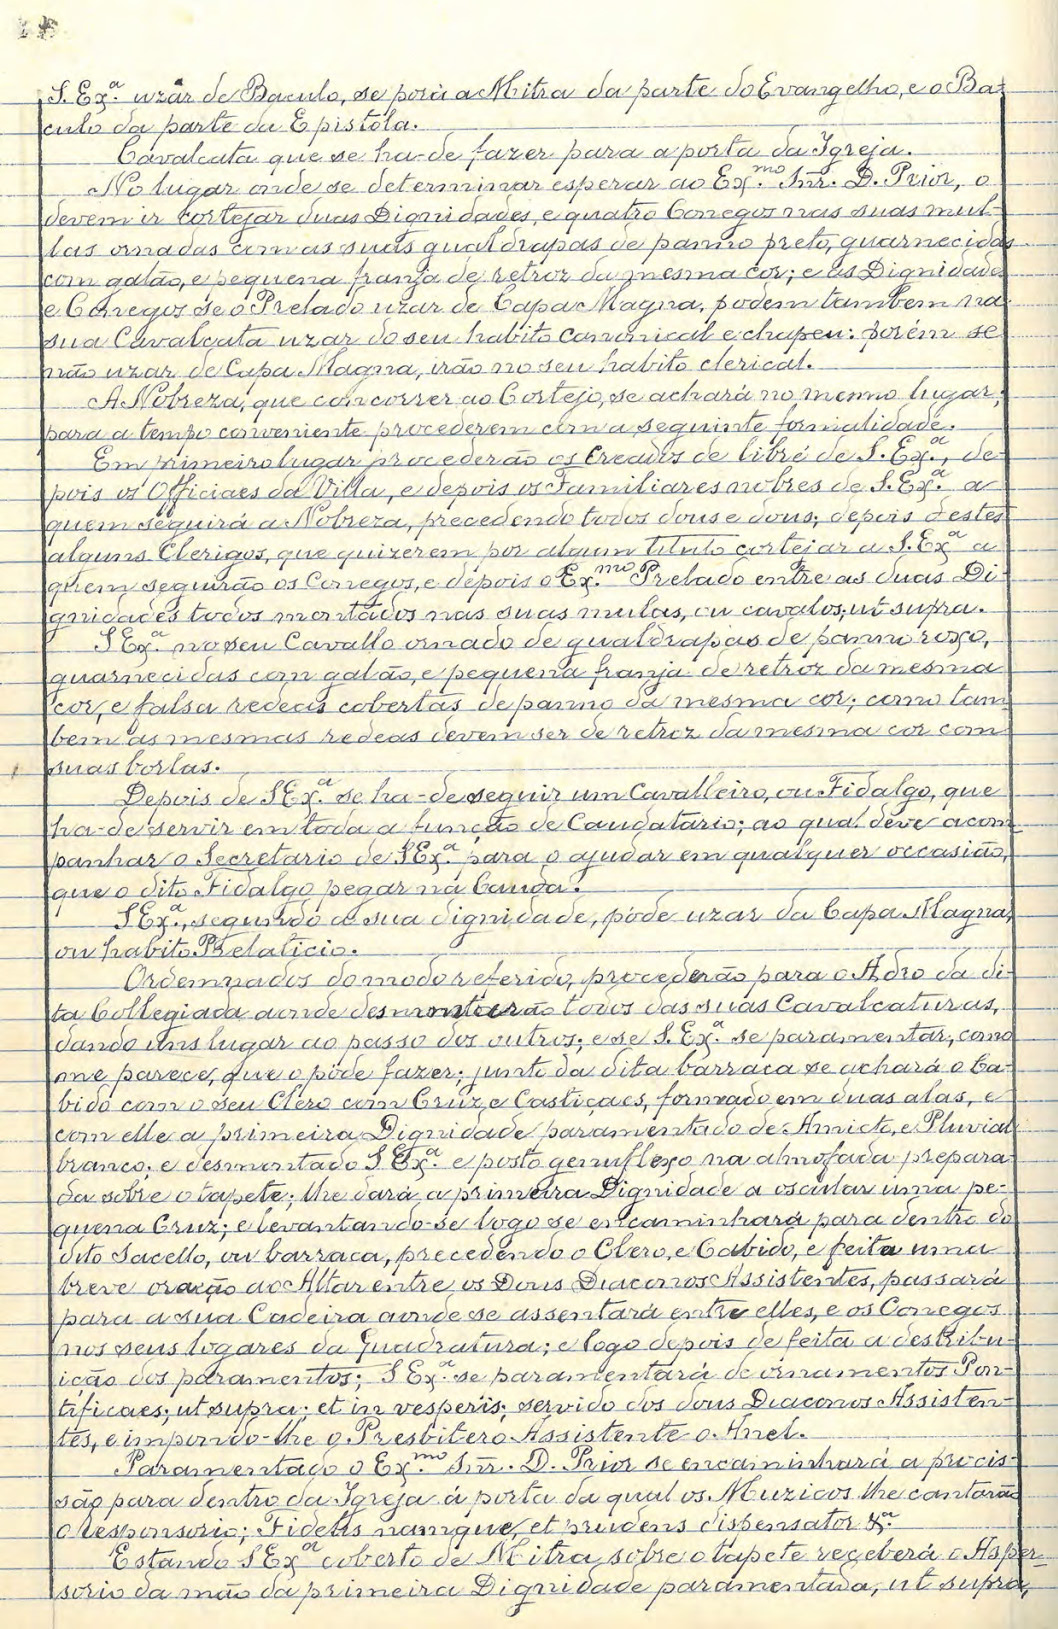 S. Ex.ª uzár de Baculo, se porá a Mitra da parte do Evangelho, e o Ba-
culo da parte da Epistola.
Cavalcata que se ha-de fazer para a porta da Igreja.
No lugar onde se determinar esperar ao Ex.mo Snr. D. Prior, o
devem ir cortejar duas Dignidades, e quatro Conegos nas suas mul-
las ornadas com as suas gualdrapas de panno preto, guarnecidas
com galão, e pequena franja de retroz da mesma cor; e as Dignidades
e Conegos se o Prelado uzar de Capa Magna, podem tambem na
sua Cavalcata uzar do seu habito canonical e chapeu: porém se
não uzar de Capa Magna, irão no seu habito clerical.
A Nobreza, que concorrer ao Cortejo, se achará no mesmo lugar,
para a tempo conveniente procederem com a seguinte formalidade.
Em primeiro lugar procederão os Creados de libré de S. Ex.ª, de-
pois os Officiaes da Villa, e depois os Familiares nobres de S. Ex.ª a
quem seguirá a Nobreza, precedendo todos dous e dous; depois d'estes
alguns Clerigos, que quizerem por algum titulo cortejar a S. Ex.ª a
quem seguirão os Conegos, e depois o Ex.mo Prelado entre as duas Di-
gnidades todos montados nas suas mulas, ou cavalos; ut supra.
S Ex.ª no seu Cavallo ornado de gualdrapas de panno roxo,
guarnecidas com galão, e pequena franja de retroz da mesma
cor, e falsa redeas cobertas de panno da mesma cor; como tam-
bem as mesmas redeas devem ser de retroz da mesma cor com
suas borlas.
Depois de S Ex.ª se ha-de seguir um Cavalleiro, ou Fidalgo, que
ha-de servir em toda a função de Caudatario; ao qual deve acom-
panhar o Secretario de S Ex.ª para o ajudar em qualquer occasião,
que o dito Fidalgo pegar na Cauda.
S Ex.ª, segundo a sua dignidade, póde uzar da Capa Magna,
ou habito Prelaticio.
Ordemnados do modo referido, procederão para o Adro da di-
ta Collegiada aonde desmontarão todos das suas Cavalcaturas,
dando uns lugar ao passo dos outros; e se S. Ex.ª se paramentar, como
me parece, que o póde fazer; junto da dita barraca se achará o Ca-
bido com o seu Clero com Cruz, e Castiçaes, formado em duas alas, e
com elle a primeira Dignidade paramentado de Amicto, e Pluvial
branco; e desmontado S Ex.ª e posto genuflexo na almofada prepara-
da sobre o tapete; lhe dará a primeira Dignidade a oscular uma pe-
quena Cruz; e levantando-se logo se encaminhará para dentro do
dito Sacello, ou barraca, precedendo o Clero, e Cabido, e feita uma
breve oração ao Altar entre os Dous Diaconos Assistentes, passará
para a sua Cadeira aonde se assentará entre elles, e os Conegos
nos seus logares da Quadratura; e logo depois de feita a destribu-
ição dos paramentos; S Ex.ª se paramentará de ornamentos Pon-
tificaes; ut supra; et in vesperis; servido dos dous Diaconos Assisten-
tes, e impondo-lhe o Presbitero Assistente o Anel.
Paramentado o Ex.mo Snr. D. Prior se encaminhará a procis-
são para dentro da Igreja á porta da qual os Muzicos lhe cantarão
o responsorio; Fidelis namque, et prudens dispensator &.ª
Estando S Ex.ª coberto de Mitra, sobre o tapete receberá o Asper-
sorio da mão da primeira Dignidade paramentada, ut supra,